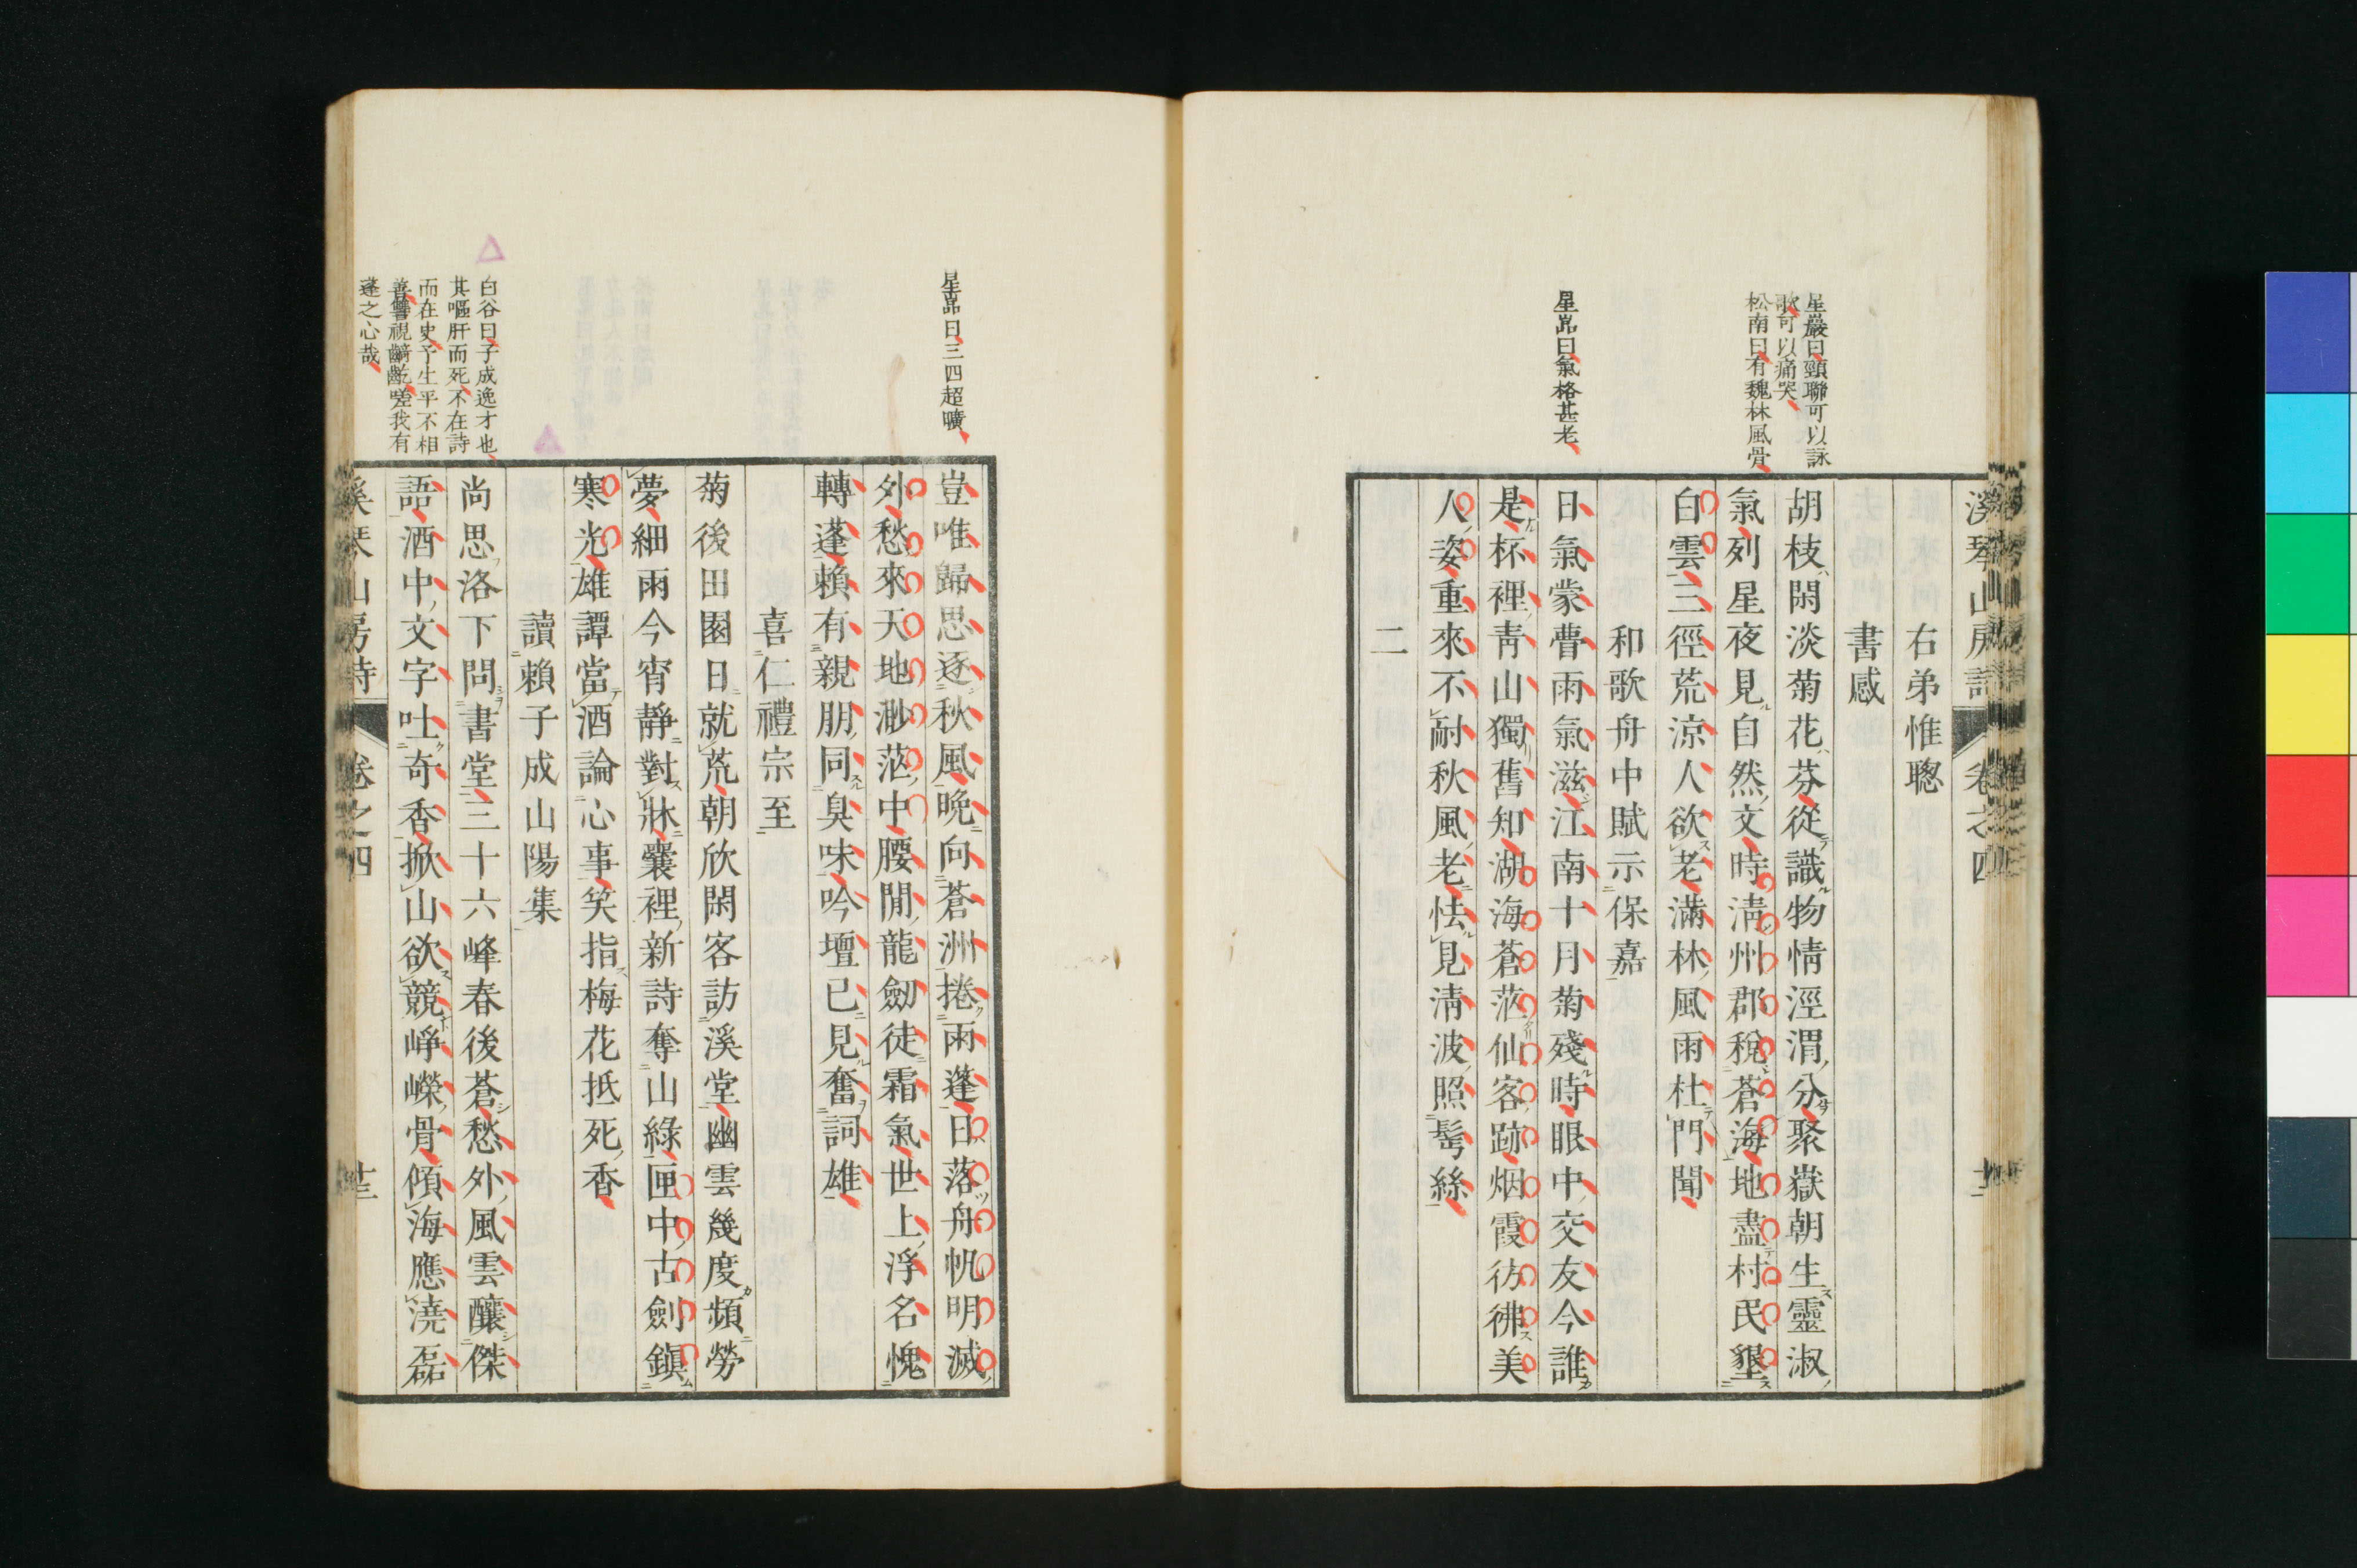 星巖曰頸聯可以詠
歌可以痛哭
松南曰有魏林風骨
星嵓曰氣格甚老
溪琴山房詩 卷之四
右弟惟聰
書感
胡枝閑淡菊花芬從識物情涇渭分聚嶽朝生靈淑
氣列星夜見自然文時淸州郡稅蒼海地盡村民墾
白雲三徑荒涼人欲老滿林風雨杜門聞
和歌舟中賦示保嘉
日氣蒙曹雨氣滋江南十月菊殘時眼中交友今誰
是杯裡靑山獨舊知湖海蒼茫仙客跡烟霞彷彿美
人姿重來不耐秋風老怯見淸波照髩絲
二
星嵓曰三四超曠
豈唯歸思逐秋風晩向蒼洲捲雨蓬日落舟帆明滅
外愁來天地渺茫中腰閒龍劒徒霜氣世上浮名愧
轉蓬賴有親朋同臭味吟壇已見奮詞雄
喜仁禮宗至
菊後田園日就荒朝欣閑客訪溪堂幽雲幾度頻勞
夢細雨今宵靜對牀囊裡新詩奪山綠匣中古劍鎭
寒光雄譚當酒論心事笑指梅花抵死香
讀賴子成山陽集
白谷曰子成逸才也
其嘔肝而死不在詩
而在史予生平不相
善讐視齮齕嗟我有
蓬之心哉
尚思洛下問書堂三十六峰春後蒼愁外風雲釀傑
語酒中文字吐奇香掀山欲競崢嶸骨傾海應澆磊
溪琴山房詩 卷之四 廿三